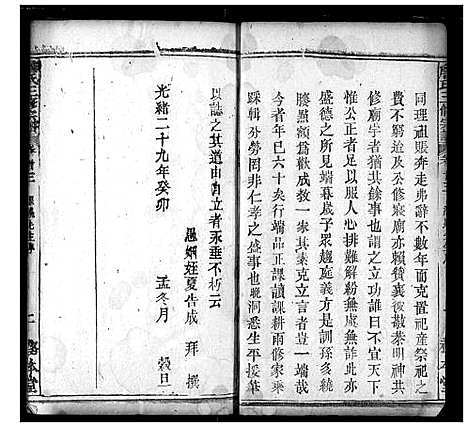 同理祖賬奔走弗辭不數年而克置祀產祭祀之
費不窮迨及公修家廟亦賴贊襄後敬泰明神共
修廟宇者猶其餘事也謂之立功曰不宜天下
惟公正者足以服人心排難解紛無處無詐此亦
盛德之所見端暮歲子眾趨庭義方是訓孫多繞
膝熙顏爲歡成教一本其素克立言者豈一端
今者年已六十矣行端品正課讀課耕雨修家乘
踩輯分勞罔非仁孝之盛事也晚洞悉生平援筆
以誌之其道由自立者永垂不朽云
光緒二十九年癸卯 孟冬月 穀旦
愚姻姪夏告成 拜 撰